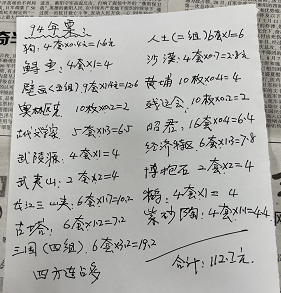 94年票:
狗: 4套×0.4元=1.6元
鲟: 4套×1=4
敦煌(五组), 9套×1.4=12.6
奥林匹克 10枚×0.2=2
古代文学家 5套×1.3=6.5
武陵源: 4套×1=4
武夷山: 2套×2=4
长江三峡: 6套×1.7=10.2
古塔: 6套×1.2=7.2
三国(四组). 6套×3.2=19.2
四方连多
人士(二组)6套×1=6
沙漠: 4套×0.7=2.8元
黄埔 10枚×0.4=4
残运会, 10枚×0.2=2
昭君: 16套×0.4=6.4
经济特区 6套×1.3=7.8
博抱石 2套×2=4
鹤: 4套×1=4
紫砂陶: 4套×1.1=4.4
合计: 112.7元